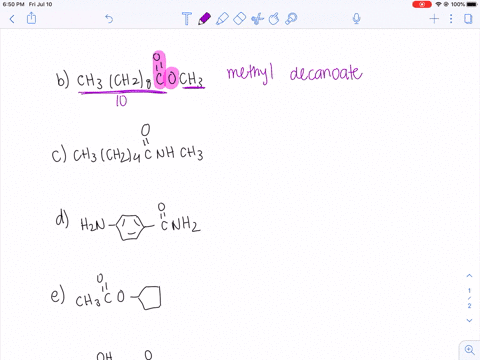 6:50 PM Fri Jul 10
100%
O
b) CH3 (CH2)8 C O CH3 methyl decanoate
10
O
c) CH3(CH2)4 C NH CH3
O
d) H2N C NH2
O
e) CH3 C O
OH O
1
/
2